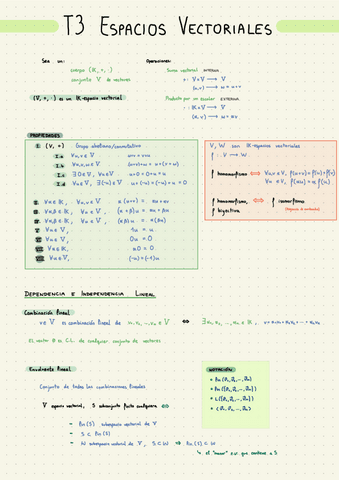 T3 ESPACIOS VECTORIALES
Sea un:
cuerpo (K, +, ·)
conjunto V de vectores
(V, +, ·) es un K-espacio vectorial
Operaciones:
Suma vectorial INTERNA
+ : V × V → V
(u, v) → u + v
Producto por un escalar EXTERNA
· : K × V → V
(α, v) → αv
PROPIEDADES
I. (V, +) Grupo abeliano/conmutativo
I.a ∀u,v ∈ V u+v = v+u
I.b ∀u,v,w ∈ V (u+v)+w = u+(v+w)
I.c ∃ 0 ∈ V, ∀u ∈ V u+0 = 0+u = u
I.d ∀u ∈ V, ∃(-u) ∈ V u+(-u) = (-u)+u = 0
II. ∀α ∈ K, ∀u,v ∈ V α(u+v) = αu + αv
III. ∀α,β ∈ K, ∀u ∈ V, (α+β)u = αu + βu
IV. ∀α,β ∈ K, ∀u ∈ V, (αβ)u = α(βu)
V. ∀u ∈ V, 1u = u
VI. ∀u ∈ V, 0u = 0
VII. ∀α ∈ K, α0 = 0
VIII. ∀u ∈ V, (-u) = (-1)u
V, W son K-espacios vectoriales
f : V → W
f homomorfismo ⇔ ∀u,v ∈ V, f(u+v) = f(u) + f(v)
∀α ∈ K, f(αu) = α f(u)
f homomorfismo, ⇔ f isomorfismo
f biyectiva
DEPENDENCIA E INDEPENDENCIA LINEAL
Combinación lineal
v ∈ V es combinación lineal de v₁, v₂, ..., vₙ ∈ V ⇔ ∃ α₁, α₂, ..., αₙ ∈ K, v = α₁v₁ + α₂v₂ + ... + αₙvₙ
El vector 0 es C.L. de cualquier conjunto de vectores
Envolvente lineal
Conjunto de todas las combinaciones lineales
V espacio vectorial, S subconjunto finito cualquiera ⇔
- Lin(S) subespacio vectorial de V
- S ⊂ Lin(S)
- W subespacio vectorial de V, S ⊂ W ⇒ Lin(S) ⊂ W
↳ el "menor" s.v. que contiene a S
NOTACIÓN